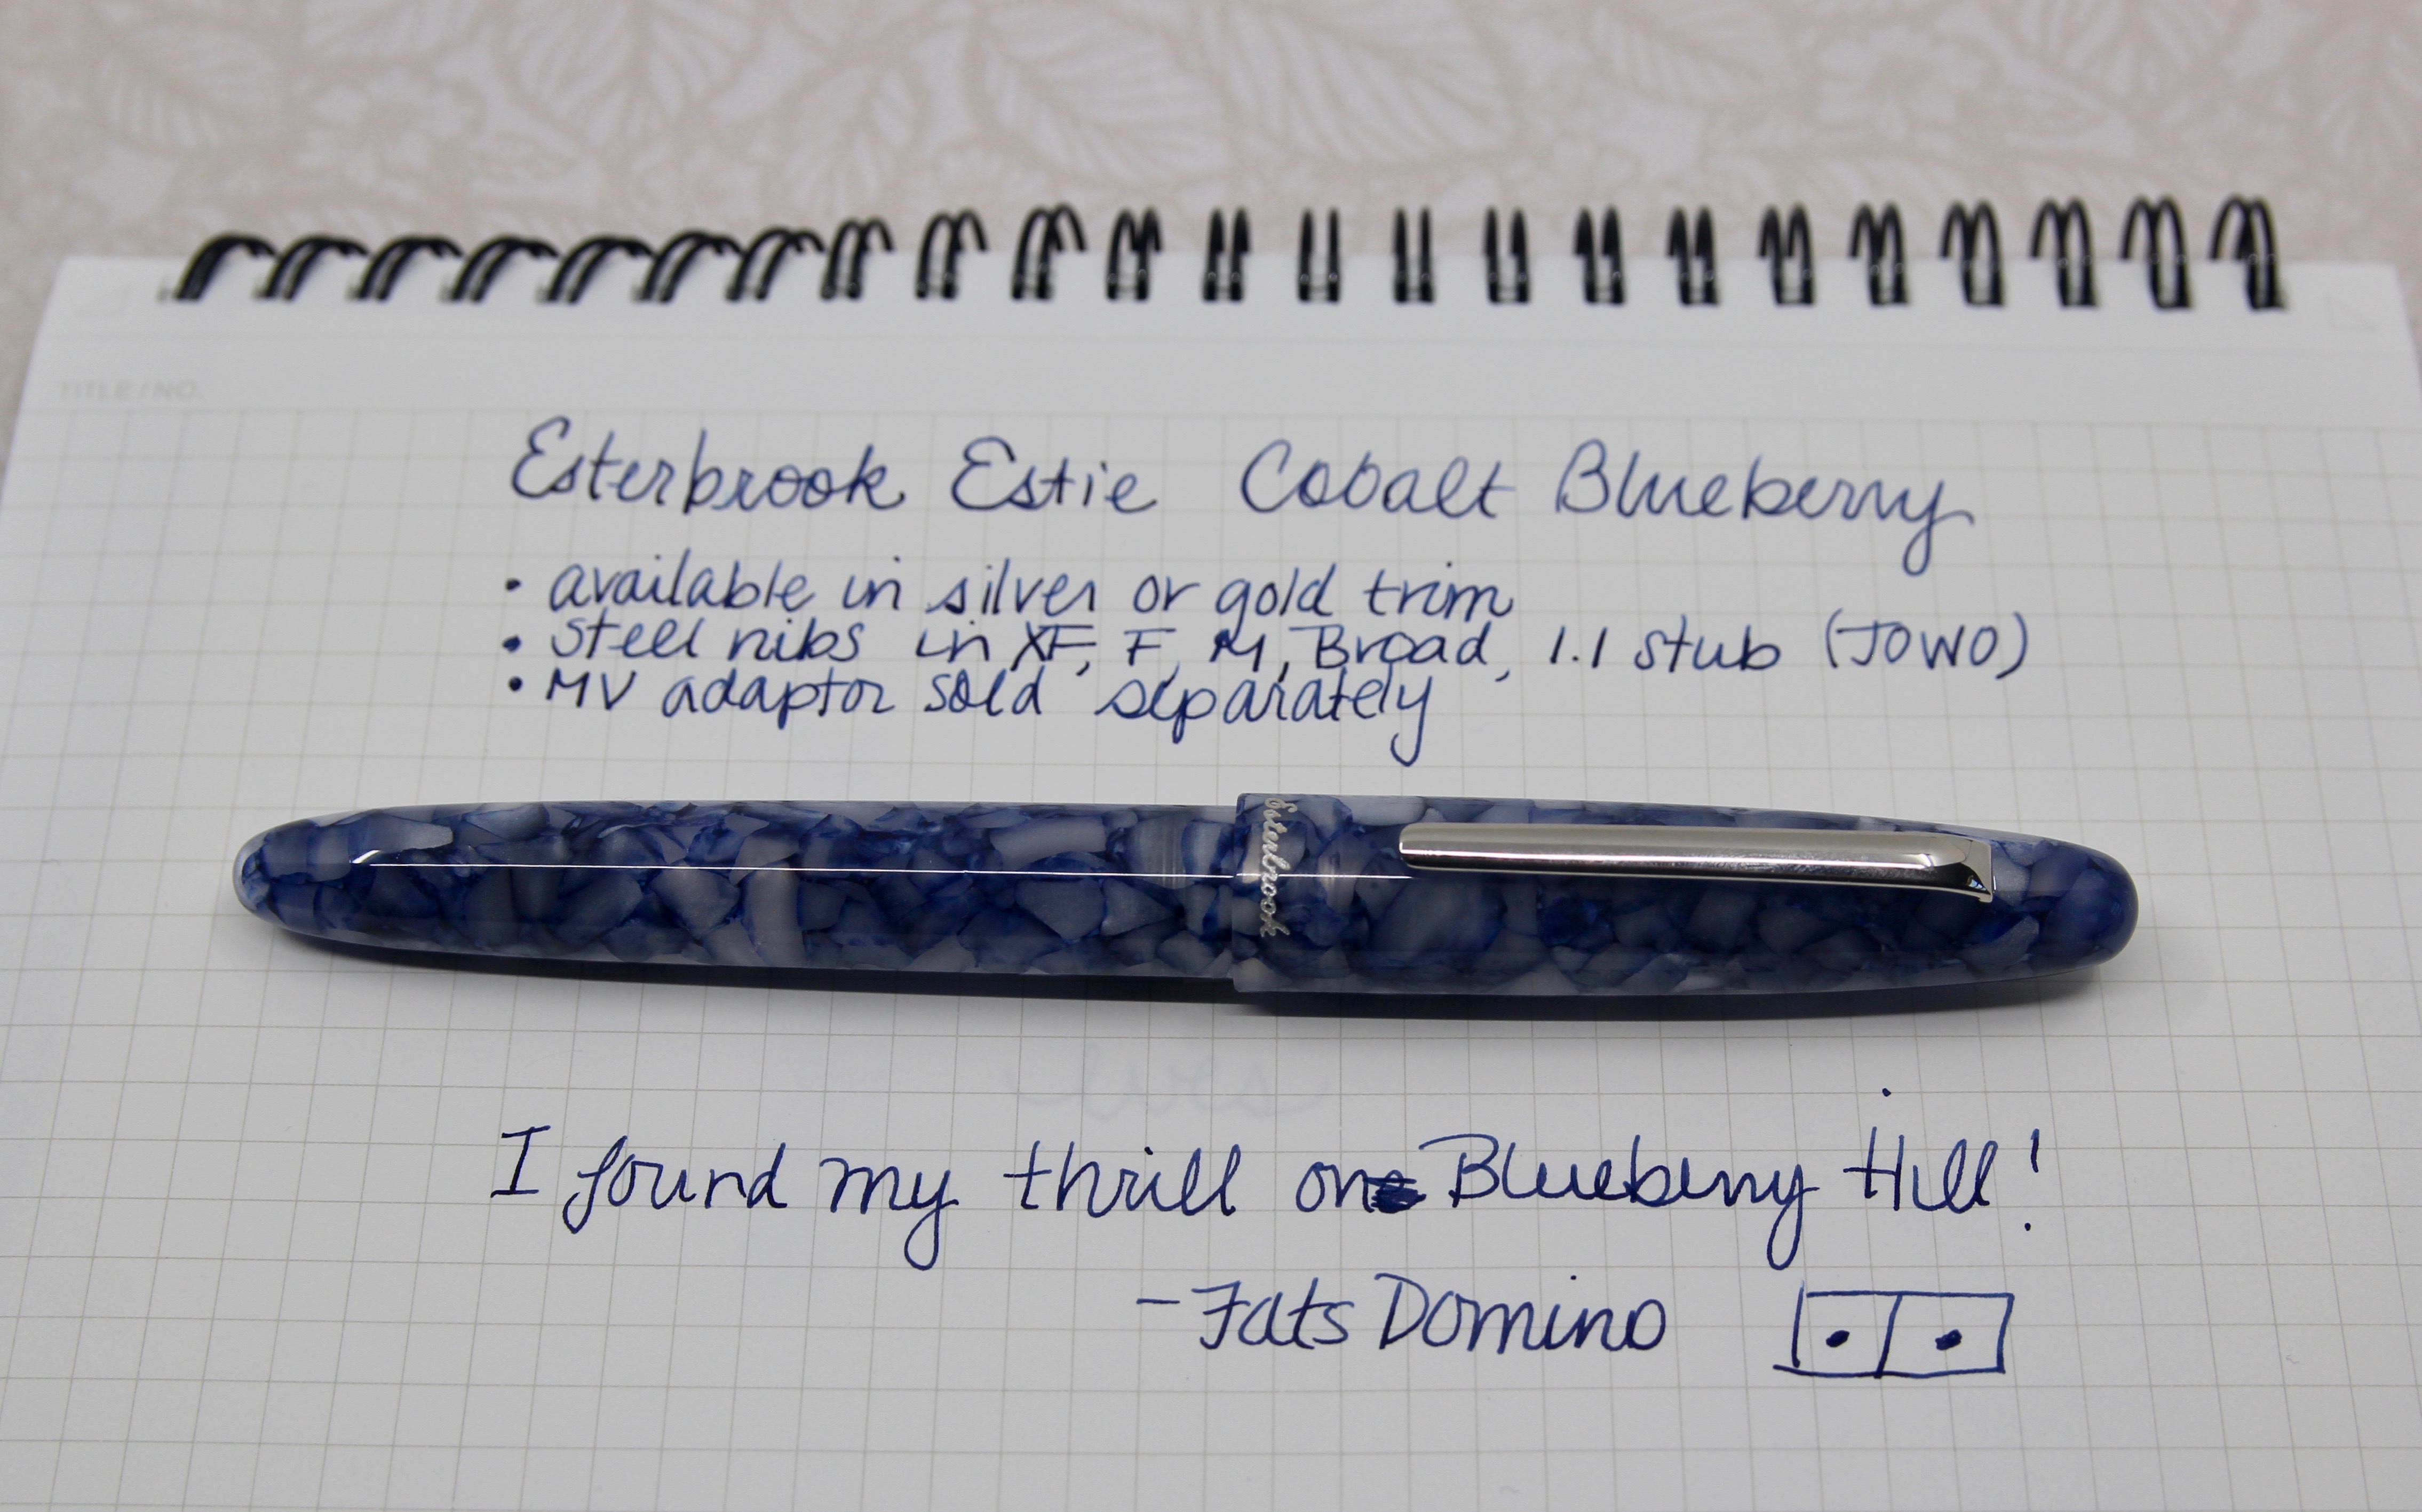 TITLE/NO.
Esterbrook Estie Cobalt Blueberry
• available in silver or gold trim
• steel nibs in XF, F, M, Broad, 1.1 stub (JOWO)
• MV adaptor sold separately
Esterbrook
I found my thrill on Blueberry Hill!
- Fats Domino